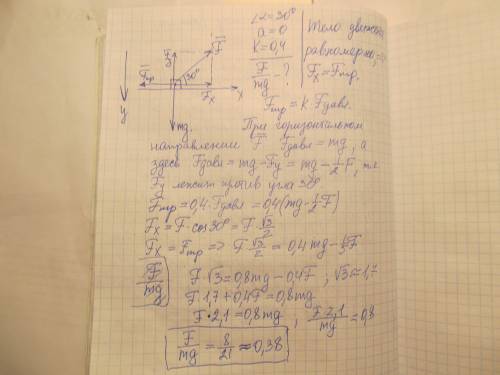 ∠α = 30°
a = 0
K = 0,4
F/mg - ?
Тело движется
равномерно, =>
Fx = Fтр.
F⃗тр
Fy
F⃗
30°
Fx
x
y
mg.
Fтр = k·Fдавл.
При горизонтальном
направлении F⃗ Fдавл = mg, а
здесь Fдавл = mg - Fy = mg - 1/2 F, т.к.
Fy лежит против угла 30°
Fтр = 0,4·Fдавл = 0,4(mg - 1/2 F)
Fx = F·cos30° = F·√3/2
Fx = Fтр => F·√3/2 = 0,4mg - F
F/mg
F·√3 = 0,8mg - 0,4F ; √3 ≈ 1,7
F·1,7 + 0,4F = 0,8mg
F·2,1 = 0,8mg ; F·2,1/mg = 0,8
F/mg = 8/21 ≈ 0,38